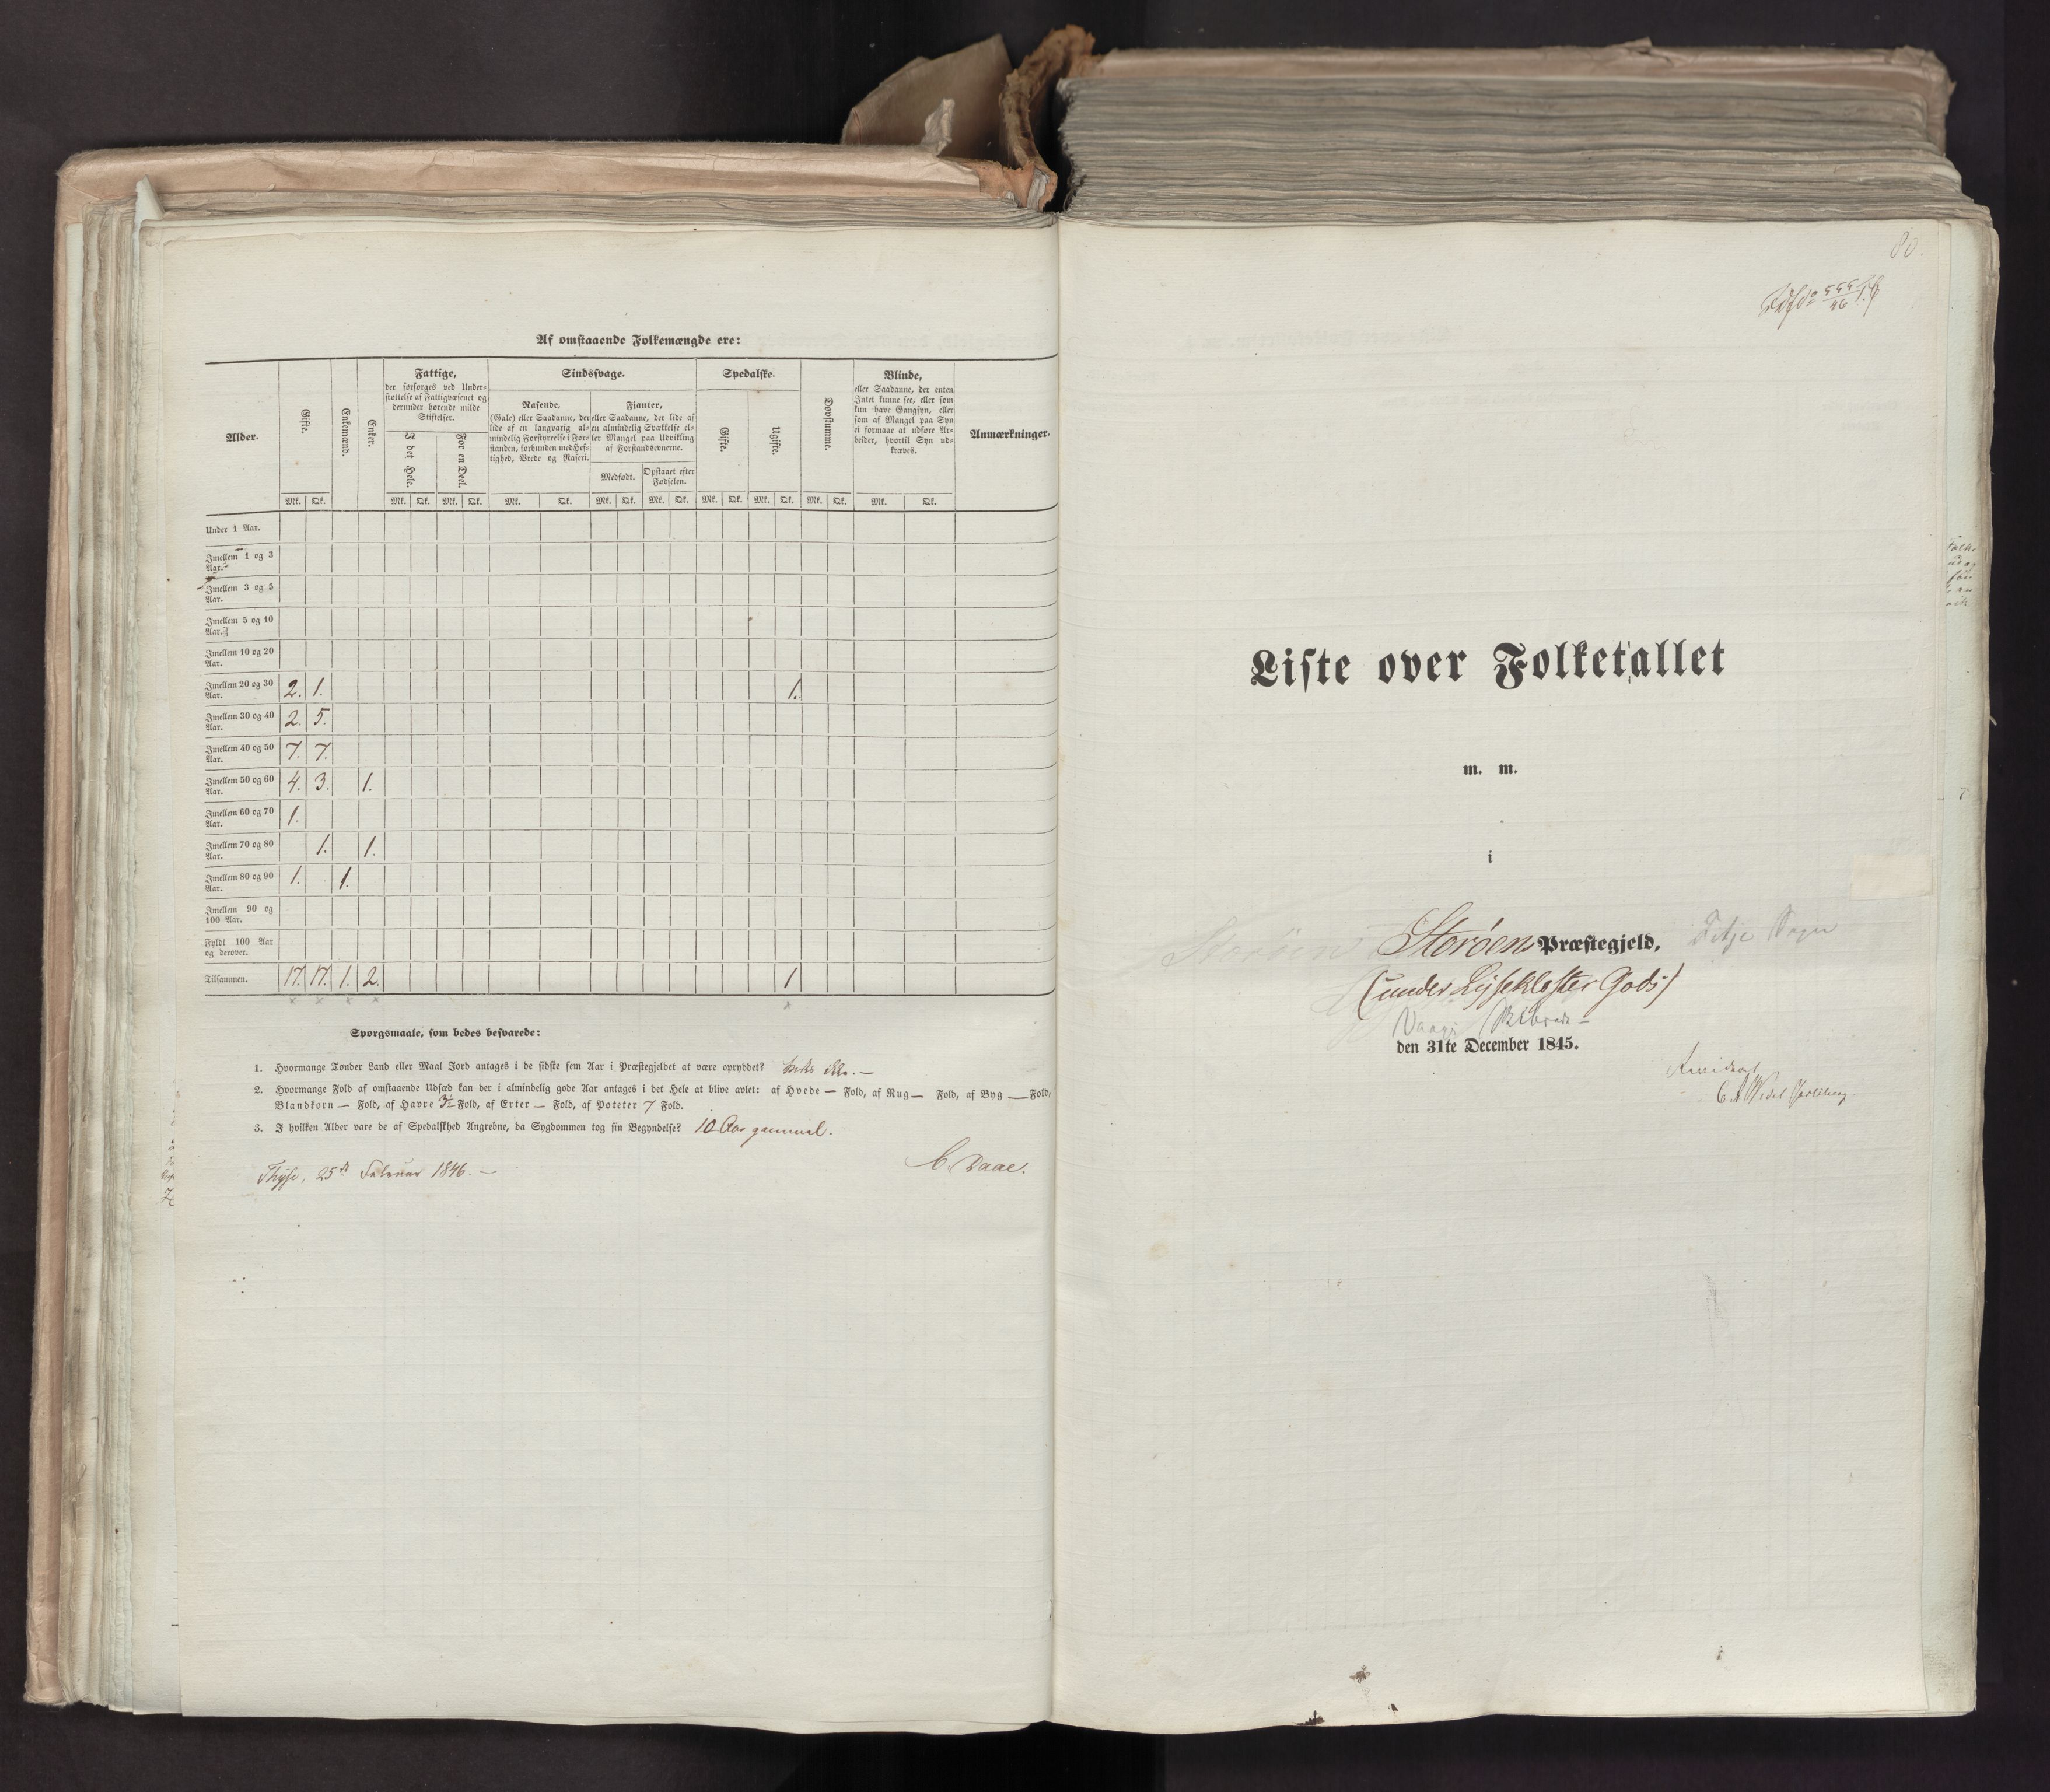 Af omstaaende Folkemængde ere:
Alder.
Gifte.
Enkemænd.
Enker.
Fattige,
der forsørges ved Under-
støttelse af Fattigvæsenet og
derunder hørende milde
Stiftelser.
I det Hele.
For en Deel.
Sindssvage.
Rasende,
(Gale) eller Saadanne, der
lide af en langvarig al-
mindelig Forstyrrelse i For-
standen, forbunden med Hef-
tighed, Vrede og Raseri.
Fjanter,
eller Saadanne, der lide af
en almindelig Svækkelse el-
ler Mangel paa Udvikling
af Forstandsevnerne.
Medfødt.
Opstaaet efter
Fødselen.
Spedalske.
Gifte.
Ugifte.
Døvstumme.
Blinde,
eller Saadanne, der enten
Intet kunne see, eller som
kun have Gangsyn, eller
som af Mangel paa Syn
ei formaae at udføre Ar-
beider, hvortil Syn ud-
kræves.
Anmærkninger.
Mk. Qk. Mk. Qk. Mk. Qk. Mk. Qk. Mk. Qk. Mk. Qk. Mk. Qk. Mk. Qk. Mk. Qk. Mk. Qk.
Under 1 Aar.
Imellem 1 og 3
Aar.
Imellem 3 og 5
Aar.
Imellem 5 og 10
Aar.
Imellem 10 og 20
Aar.
Imellem 20 og 30
Aar. 2. 1. 1.
Imellem 30 og 40
Aar. 2. 5.
Imellem 40 og 50
Aar. 7. 7.
Imellem 50 og 60
Aar. 4. 3. 1.
Imellem 60 og 70
Aar. 1.
Imellem 70 og 80
Aar. 1. 1.
Imellem 80 og 90
Aar. 1. 1.
Imellem 90 og
100 Aar.
Fyldt 100 Aar
og derover.
Tilsammen. 17. 17. 1. 2. 1
Spørgsmaale, som bedes besvarede:
1. Hvormange Tønder Land eller Maal Jord antages i de sidste fem Aar i Præstegjeldet at være opryddet?
2. Hvormange Fold af omstaaende Udsæd kan der i almindelig gode Aar antages i det Hele at blive avlet: af Hvede — Fold, af Rug — Fold, af Byg — Fold,
Blandkorn — Fold, af Havre 3½ Fold, af Erter — Fold, af Poteter 7 Fold.
3. I hvilken Alder vare de af Spedalskhed Angrebne, da Sygdommen tog sin Begyndelse? 10 Aar gammel.
Thyse, 25de Februar 1846. —
C. Daae.
80.
Liste over Folketallet
m. m.
i
Storøens Præstegjeld, Fitje Sogn
(under Lysekloster Gods)
den 31te December 1845.